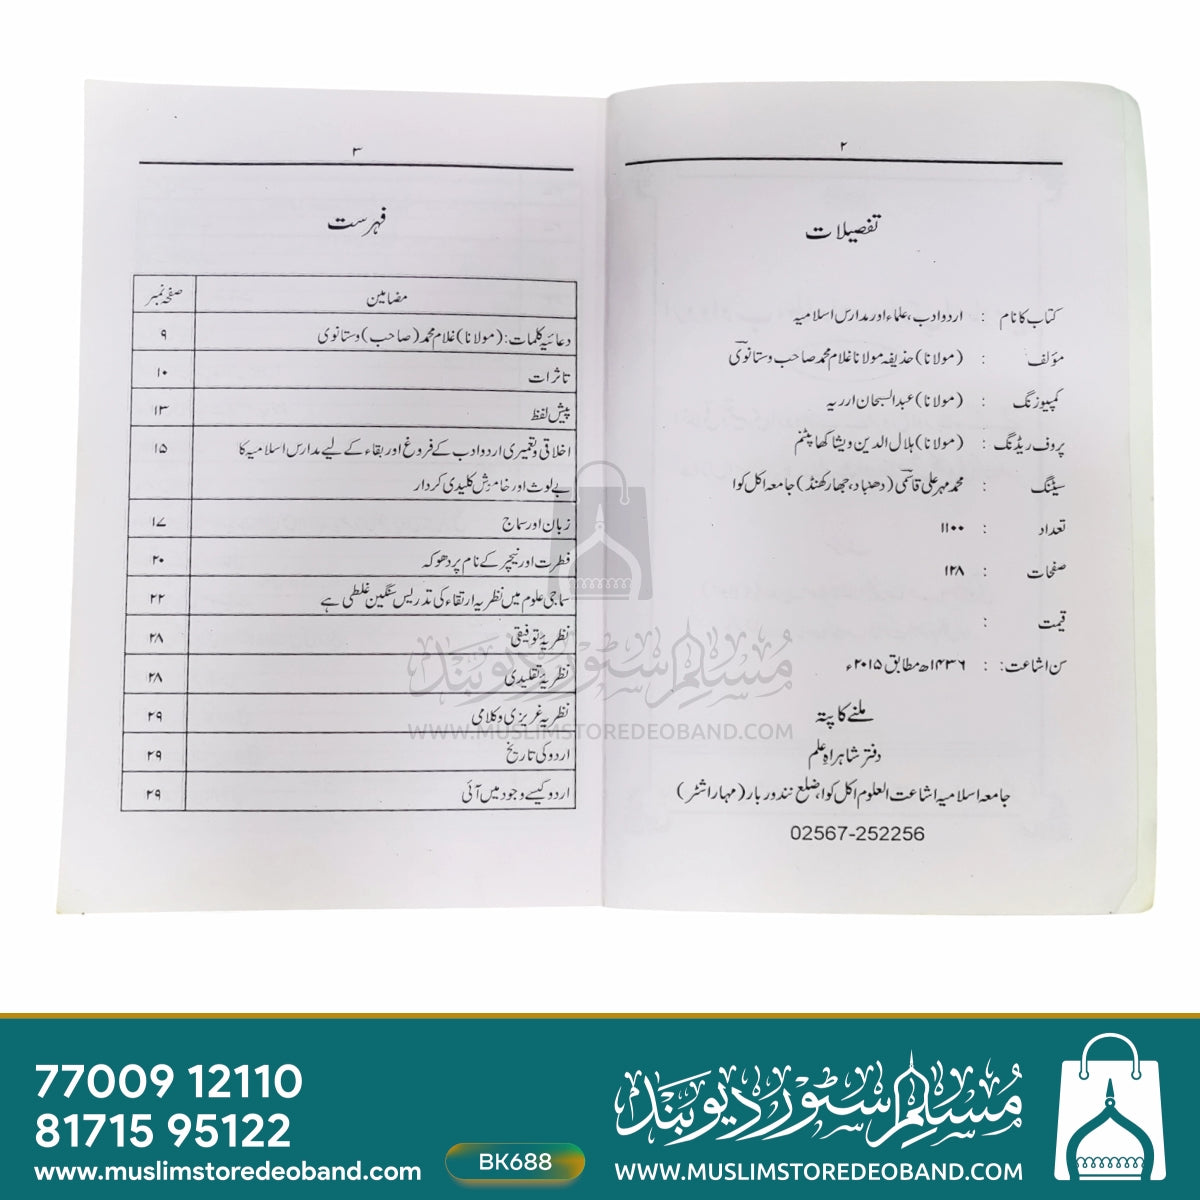 ۲
تفصیلات
کتاب کا نام : اردو ادب، علماء اور مدارس اسلامیہ
مؤلف : (مولانا) حذیفہ مولانا غلام محمد صاحب وستانوی
کمپوزنگ : (مولانا) عبدالسبحان ارریہ
پروف ریڈنگ : (مولانا) ہلال الدین ویشاکھاپٹنم
سیٹنگ : محمد مہر علی قاسمی (دھنباد، جھارکھنڈ) جامعہ اکل کوا
تعداد : ۱۱۰۰
صفحات : ۱۲۸
قیمت :
سن اشاعت: : ۱۴۳۶ھ مطابق ۲۰۱۵ء
ملنے کا پتہ
دفتر شاہراہِ علم
جامعہ اسلامیہ اشاعت العلوم اکل کوا، ضلع نندوربار (مہاراشٹر)
02567-252256
۳
فہرست
مضامین صفحہ نمبر
دعائیہ کلمات: (مولانا) غلام محمد (صاحب) وستانوی ۹
تاثرات ۱۰
پیش لفظ ۱۳
اخلاقی و تعمیری اردو ادب کے فروغ اور بقاء کے لیے مدارس اسلامیہ کا ۱۵
بے لوث اور خاموش کلیدی کردار
زبان اور سماج ۱۷
فطرت اور نیچر کے نام پر دھوکہ ۲۰
سماجی علوم میں نظریہ ارتقاء کی تدریس سنگین غلطی ہے ۲۲
نظریۂ توفیقی ۲۸
نظریۂ تقلیدی ۲۸
نظریہ غریزی و کلامی ۲۹
اردو کی تاریخ ۲۹
اردو کیسے وجود میں آئی ۲۹
مسلم سٹور دیوبند
WWW.MUSLIMSTOREDEOBAND.COM
77009 12110
81715 95122
www.muslimstoredeoband.com
BK688
مسلم سٹور دیوبند
WWW.MUSLIMSTOREDEOBAND.COM